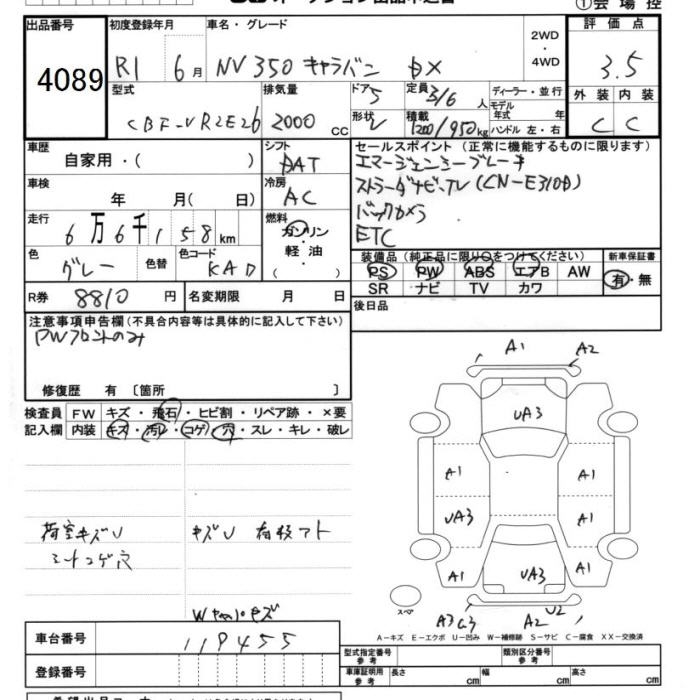 オークション出品申込書
①会場控
出品番号
4089
初度登録年月
R1 6月
車名・グレード
NV350 キャラバン DX
2WD
・
4WD
評価点
3.5
型式
CBF-VR2E26
排気量
2000 CC
ドア
5
定員
3/6 人
形状
V
積載
1200/950 kg
ディーラー・並行
モデル年式 年
ハンドル 左・右
外装 内装
C C
車歴
自家用・( )
シフト
DAT
車検
年 月( 日)
冷房
AC
走行
6万6千158km
燃料
ガソリン
軽油
( )
色
グレー
色替
色コード
KAD
R券 8810 円
名変期限 月 日
セールスポイント (正常に機能するものに限ります)
エマージェンシーブレーキ
ストラーダナビ、TV(CN-E310D)
バックカメラ
ETC
装備品(純正品に限り○をつけてください)
新車保証書
PS PW ABS エアB AW
SR ナビ TV カワ
有・無
後日品
注意事項申告欄(不具合内容等は具体的に記入して下さい)
PWフロントのみ
修復歴 有〔箇所 〕
検査員
記入欄
FW キズ・飛石・ヒビ割・リペア跡・×要
内装 キズ・汚レ・コゲ・穴・スレ・キレ・破レ
荷室キズU
シートコゲ穴
キズU 看板アト
A1
A2
UA3
A1
A1
UA3
A1
A1
UA3
A1
スペア
A3
A2
U2
A-キズ E-エクボ U-凹み W-補修跡 S-サビ C-腐食 XX-交換済
車台番号
119455
登録番号
型式指定番号
参考
類別区分番号
参考
車庫証明用
参考
長さ cm
幅 cm
高さ cm